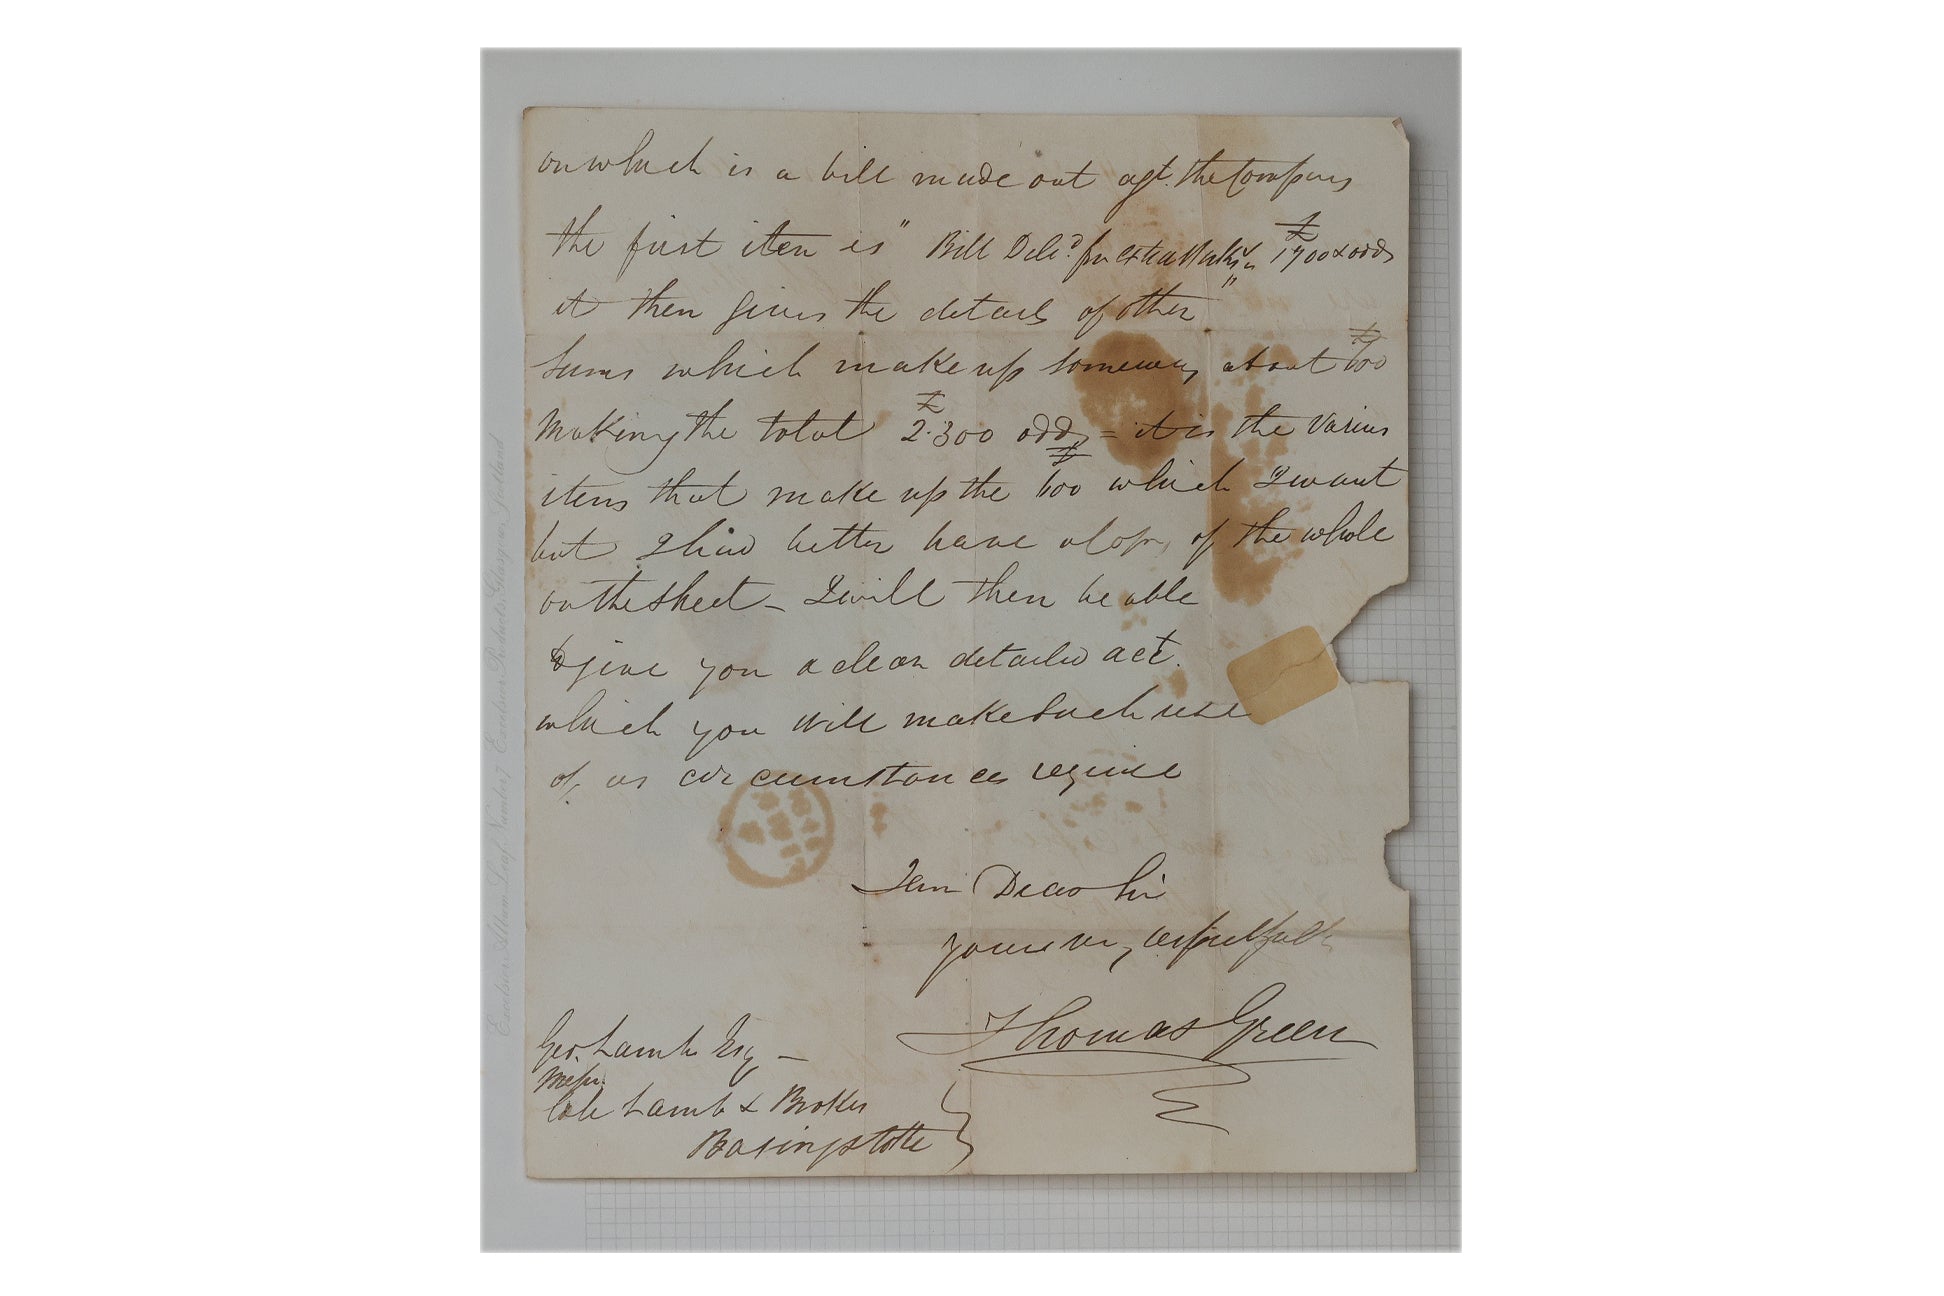 on which is a bill made out agt. the Company
the first item is " Bill Deld. for extra Works " £1700 & odd
it then gives the details of other
sums which make up someway about £600
Making the total £2.300 odd = it is the various
items that make up the £600 which I want
but I had better have a copy of the whole
on the sheet - I will then be able
to give you a clear detailed acct.
which you will make such use
of as circumstances require
I am Dear Sir
yours very respectfully
Thomas Green
Geo. Lamb Esq -
Messrs.
Cole Lamb & Brokes
Basingstoke
Excelsior Album Leaf. Number 7 Excelsior Products, Glasgow, Scotland